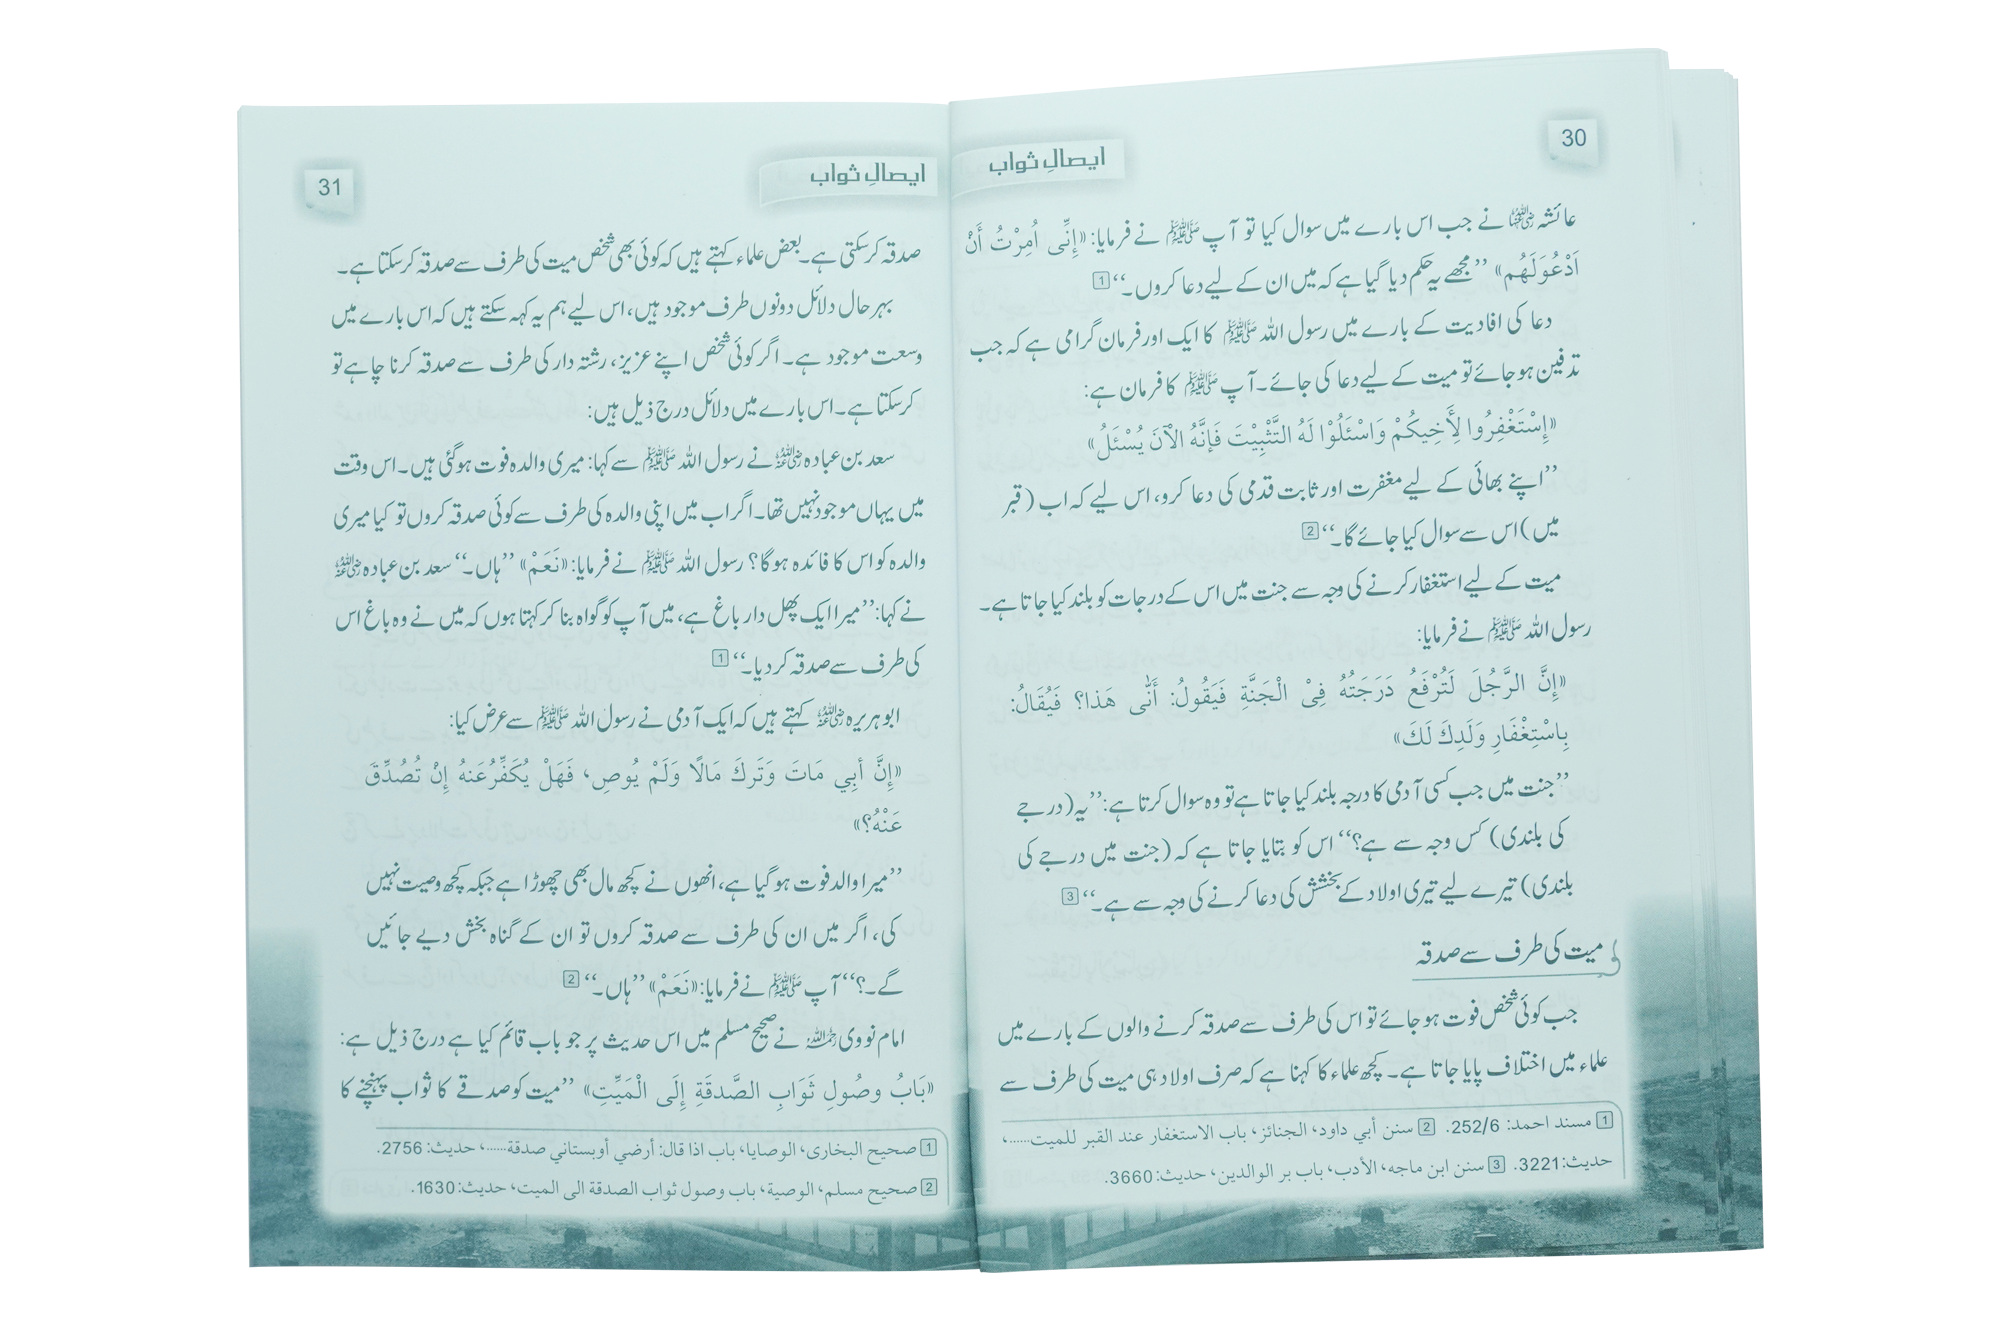 30
ایصالِ ثواب
عائشہ رضی اللہ عنہا نے جب اس بارے میں سوال کیا تو آپ ﷺ نے فرمایا: «إِنِّی اُمِرْتُ أَنْ
اَدْعُوَلَهُم» ’’مجھے یہ حکم دیا گیا ہے کہ میں ان کے لیے دعا کروں۔‘‘ 1
دعا کی افادیت کے بارے میں رسول اللہ ﷺ کا ایک اور فرمان گرامی ہے کہ جب
تدفین ہو جائے تو میت کے لیے دعا کی جائے۔ آپ ﷺ کا فرمان ہے:
«إِسْتَغْفِرُوا لِأَخِيكُمْ وَاسْئَلُوْا لَهُ التَّثْبِيْتَ فَإِنَّهُ الْآنَ يُسْئَلُ»
’’اپنے بھائی کے لیے مغفرت اور ثابت قدمی کی دعا کرو، اس لیے کہ اب (قبر
میں) اس سے سوال کیا جائے گا۔‘‘ 2
میت کے لیے استغفار کرنے کی وجہ سے جنت میں اس کے درجات کو بلند کیا جاتا ہے۔
رسول اللہ ﷺ نے فرمایا:
«إِنَّ الرَّجُلَ لَتُرْفَعُ دَرَجَتُهُ فِیْ الْجَنَّةِ فَيَقُولُ: أَنّٰی هَذا؟ فَيُقَالُ:
بِاسْتِغْفَارِ وَلَدِكَ لَكَ»
’’جنت میں جب کسی آدمی کا درجہ بلند کیا جاتا ہے تو وہ سوال کرتا ہے: ’’یہ (درجے
کی بلندی) کس وجہ سے ہے؟‘‘ اس کو بتایا جاتا ہے کہ (جنت میں درجے کی
بلندی) تیرے لیے تیری اولاد کے بخشش کی دعا کرنے کی وجہ سے ہے۔‘‘ 3
میت کی طرف سے صدقہ
جب کوئی شخص فوت ہو جائے تو اس کی طرف سے صدقہ کرنے والوں کے بارے میں
علماء میں اختلاف پایا جاتا ہے۔ کچھ علماء کا کہنا ہے کہ صرف اولاد ہی میت کی طرف سے
1 مسند احمد: 252/6. 2 سنن أبي داود، الجنائز، باب الاستغفار عند القبر للميت......،
حدیث:3221. 3 سنن ابن ماجه، الأدب، باب بر الوالدين، حدیث:3660.
31
ایصالِ ثواب
صدقہ کر سکتی ہے۔ بعض علماء کہتے ہیں کہ کوئی بھی شخص میت کی طرف سے صدقہ کر سکتا ہے۔
بہر حال دلائل دونوں طرف موجود ہیں، اس لیے ہم یہ کہہ سکتے ہیں کہ اس بارے میں
وسعت موجود ہے۔ اگر کوئی شخص اپنے عزیز، رشتہ دار کی طرف سے صدقہ کرنا چاہے تو
کر سکتا ہے۔ اس بارے میں دلائل درج ذیل ہیں:
سعد بن عبادہ رضی اللہ عنہ نے رسول اللہ ﷺ سے کہا: میری والدہ فوت ہو گئی ہیں۔ اس وقت
میں یہاں موجود نہیں تھا۔ اگر اب میں اپنی والدہ کی طرف سے کوئی صدقہ کروں تو کیا میری
والدہ کو اس کا فائدہ ہوگا؟ رسول اللہ ﷺ نے فرمایا: «نَعَمْ» ’’ہاں۔‘‘ سعد بن عبادہ رضی اللہ عنہ
نے کہا: ’’میرا ایک پھل دار باغ ہے، میں آپ کو گواہ بنا کر کہتا ہوں کہ میں نے وہ باغ اس
کی طرف سے صدقہ کر دیا۔‘‘ 1
ابو ہریرہ رضی اللہ عنہ کہتے ہیں کہ ایک آدمی نے رسول اللہ ﷺ سے عرض کیا:
«إِنَّ أبِي مَاتَ وَتَركَ مَالًا وَلَمْ يُوصِ، فَهَلْ يُكَفِّرُعَنهُ إِنْ تُصُدِّقَ
عَنْهُ؟»
’’میرا والد فوت ہو گیا ہے، انھوں نے کچھ مال بھی چھوڑا ہے جبکہ کچھ وصیت نہیں
کی، اگر میں ان کی طرف سے صدقہ کروں تو ان کے گناہ بخش دیے جائیں
گے۔؟‘‘ آپ ﷺ نے فرمایا: «نَعَمْ» ’’ہاں۔‘‘ 2
امام نووی رحمہ اللہ نے صحیح مسلم میں اس حدیث پر جو باب قائم کیا ہے درج ذیل ہے:
«بَابُ وصُولِ ثَوَابِ الصَّدقَةِ إِلَى الْمَيِّتِ» ’’میت کو صدقے کا ثواب پہنچنے کا
1 صحیح البخاری، الوصایا، باب اذا قال: أرضي أوبستاني صدقة......، حدیث: 2756.
2 صحیح مسلم، الوصية، باب وصول ثواب الصدقة الى الميت، حدیث:1630.